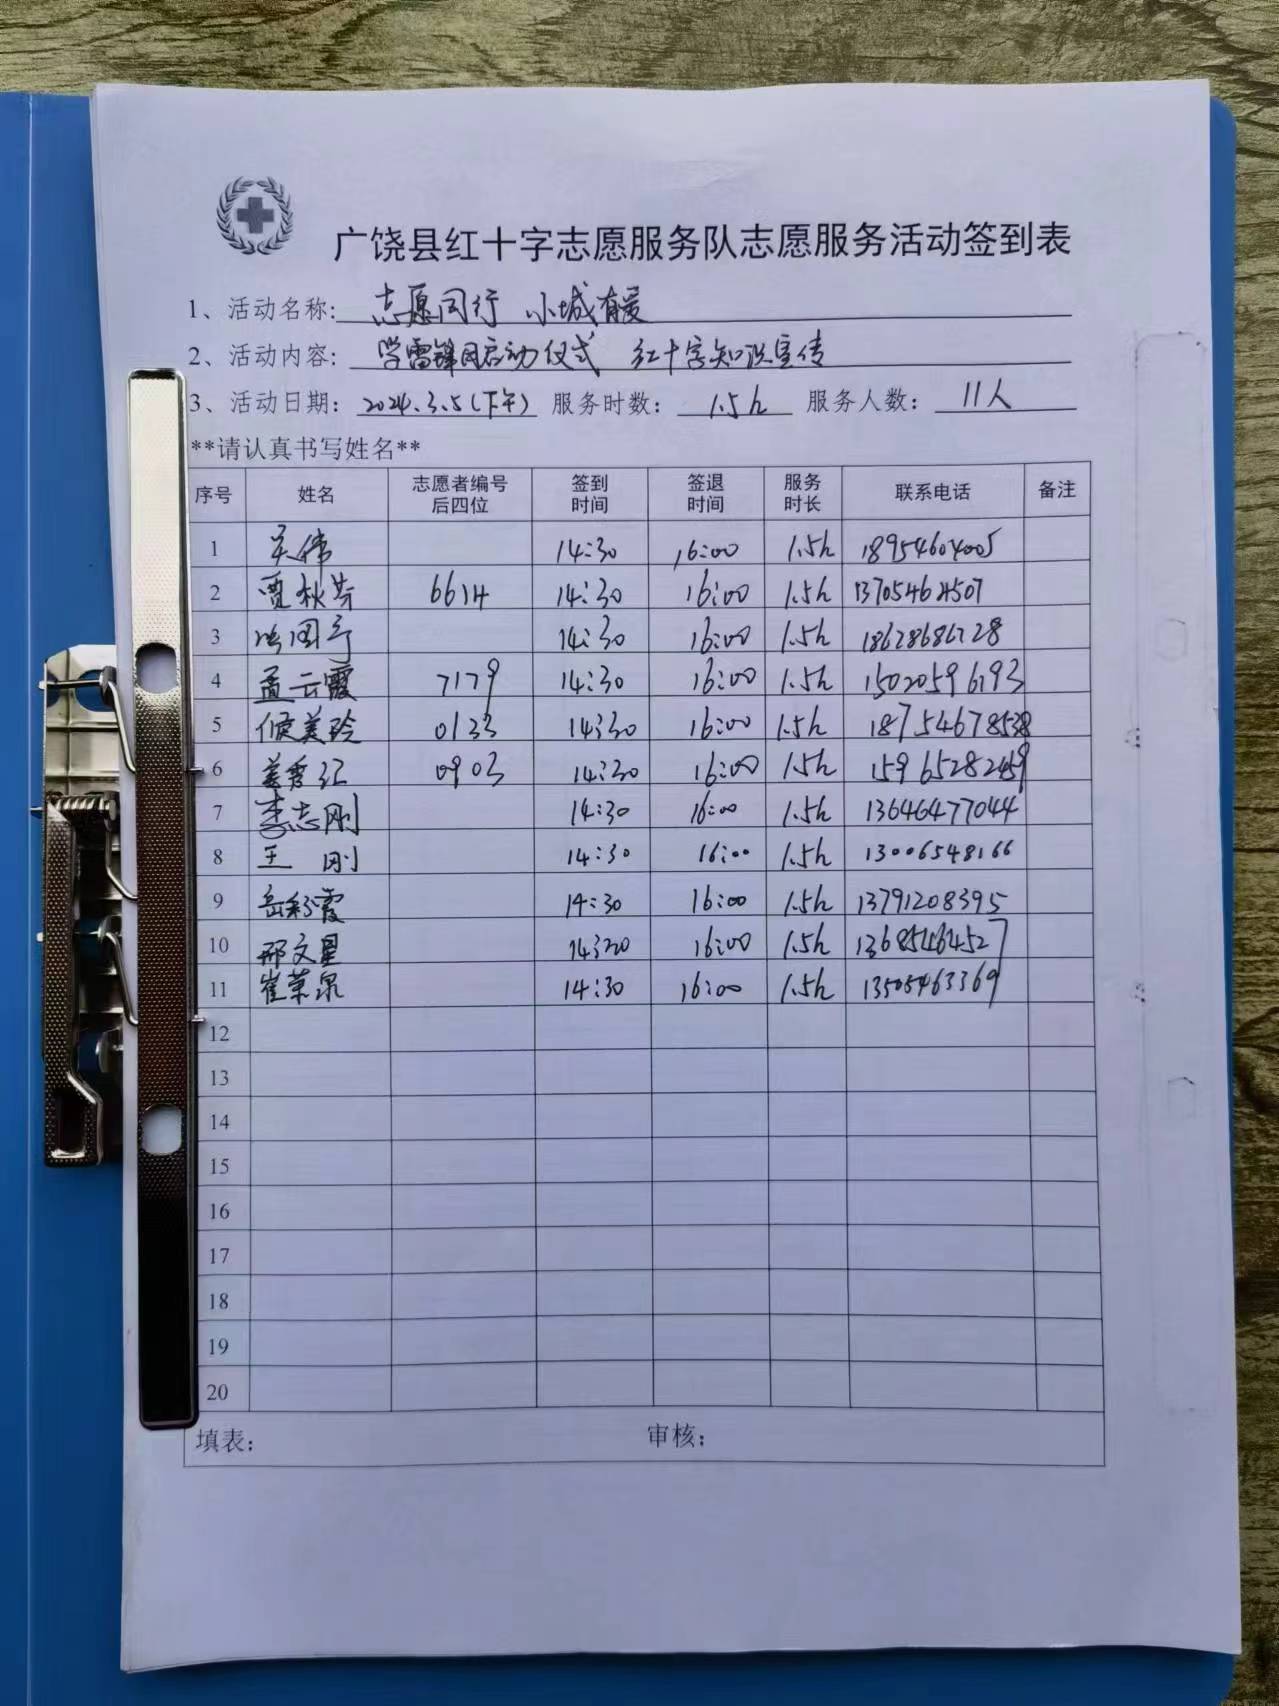 广饶县红十字志愿服务队志愿服务活动签到表
1、活动名称: 志愿同行 小城有爱
2、活动内容: 学雷锋月启动仪式 红十字知识宣传
3、活动日期: 2024.3.5(下午) 服务时数: 1.5h 服务人数: 11人
**请认真书写姓名**
序号 姓名 志愿者编号后四位 签到时间 签退时间 服务时长 联系电话 备注
1 14:30 16:00 1.5h 18954604005
2 贾秋芳 6614 14:30 16:00 1.5h
3 14:30 16:00 1.5h 18628686728
4 孟云霞 7179 14:30 16:00 1.5h 15020596193
5 侯美玲 0133 14:30 16:00 1.5h
6 姜秀江 0903 14:30 16:00 1.5h 15965282459
7 李志刚 14:30 16:00 1.5h 13646477044
8 王刚 14:30 16:00 1.5h 13006548166
9 岳彩霞 14:30 16:00 1.5h 13791208395
10 邢文星 16:00 1.5h 13685466527
11 崔荣泉 14:30 16:00 1.5h 13505463369
12
13
14
15
16
17
18
19
20
填表: 审核: